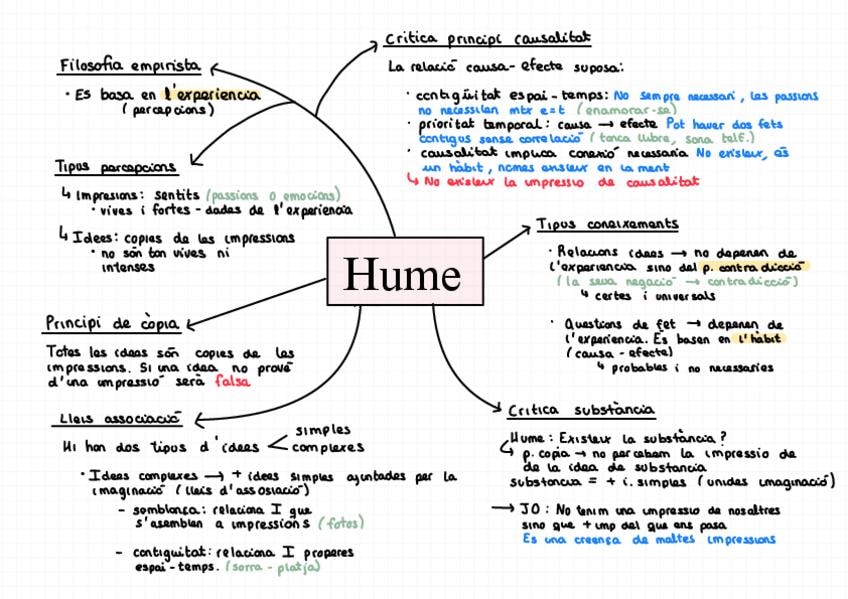 Hume
Filosofia empirista
· Es basa en l'experiencia
(percepcions)
Tipus percepcions
↳ Impresions: sentits (passions o emocions)
· vives i fortes - dades de l'experiencia
↳ Idees: copies de les impressions
· no són tan vives ni
intenses
Principi de còpia
Totes les idees són copies de les
impressions. Si una idea no prové
d'una impressió serà falsa
Lleis associació
Hi han dos tipus d'idees < simples
complexes
· Idees complexes → + idees simples ajuntades per la
imaginació (lleis d'assosiació)
- semblança: relaciona I que
s'asemblen a impressions (fotos)
- contiguitat: relaciona I properes
espai-temps. (sorra - platja)
Critica principi causalitat
La relació causa-efecte suposa:
· contigüitat espai-temps: No sempre necessari, les passions
no necessiten mtx e=t (enamorar-se)
· prioritat temporal: causa → efecte Pot haver dos fets
contigus sense correlació (tanca llibre, sona telf.)
· causalitat implica conexió necessaria No existeix, és
un hàbit, només existeix en la ment
↳ No existeix la impressió de causalitat
Tipus coneixements
· Relacions idees → no depenen de
l'experiencia sino del p. contradicció
(la seva negació → contradicció)
↳ certes i universals
· Questions de fet → depenen de
l'experiencia. Es basen en l'hàbit
(causa-efecte)
↳ probables i no necessaries
Critica substància
Hume: Existeix la substància?
↳ p. copia → no percebem la impressio de
de la idea de substancia
substancia = + i. simples (unides imaginació)
→ JO: No tenim una impressio de nosaltres
sino que + imp del que ens pasa
Es una creença de maltes impressions